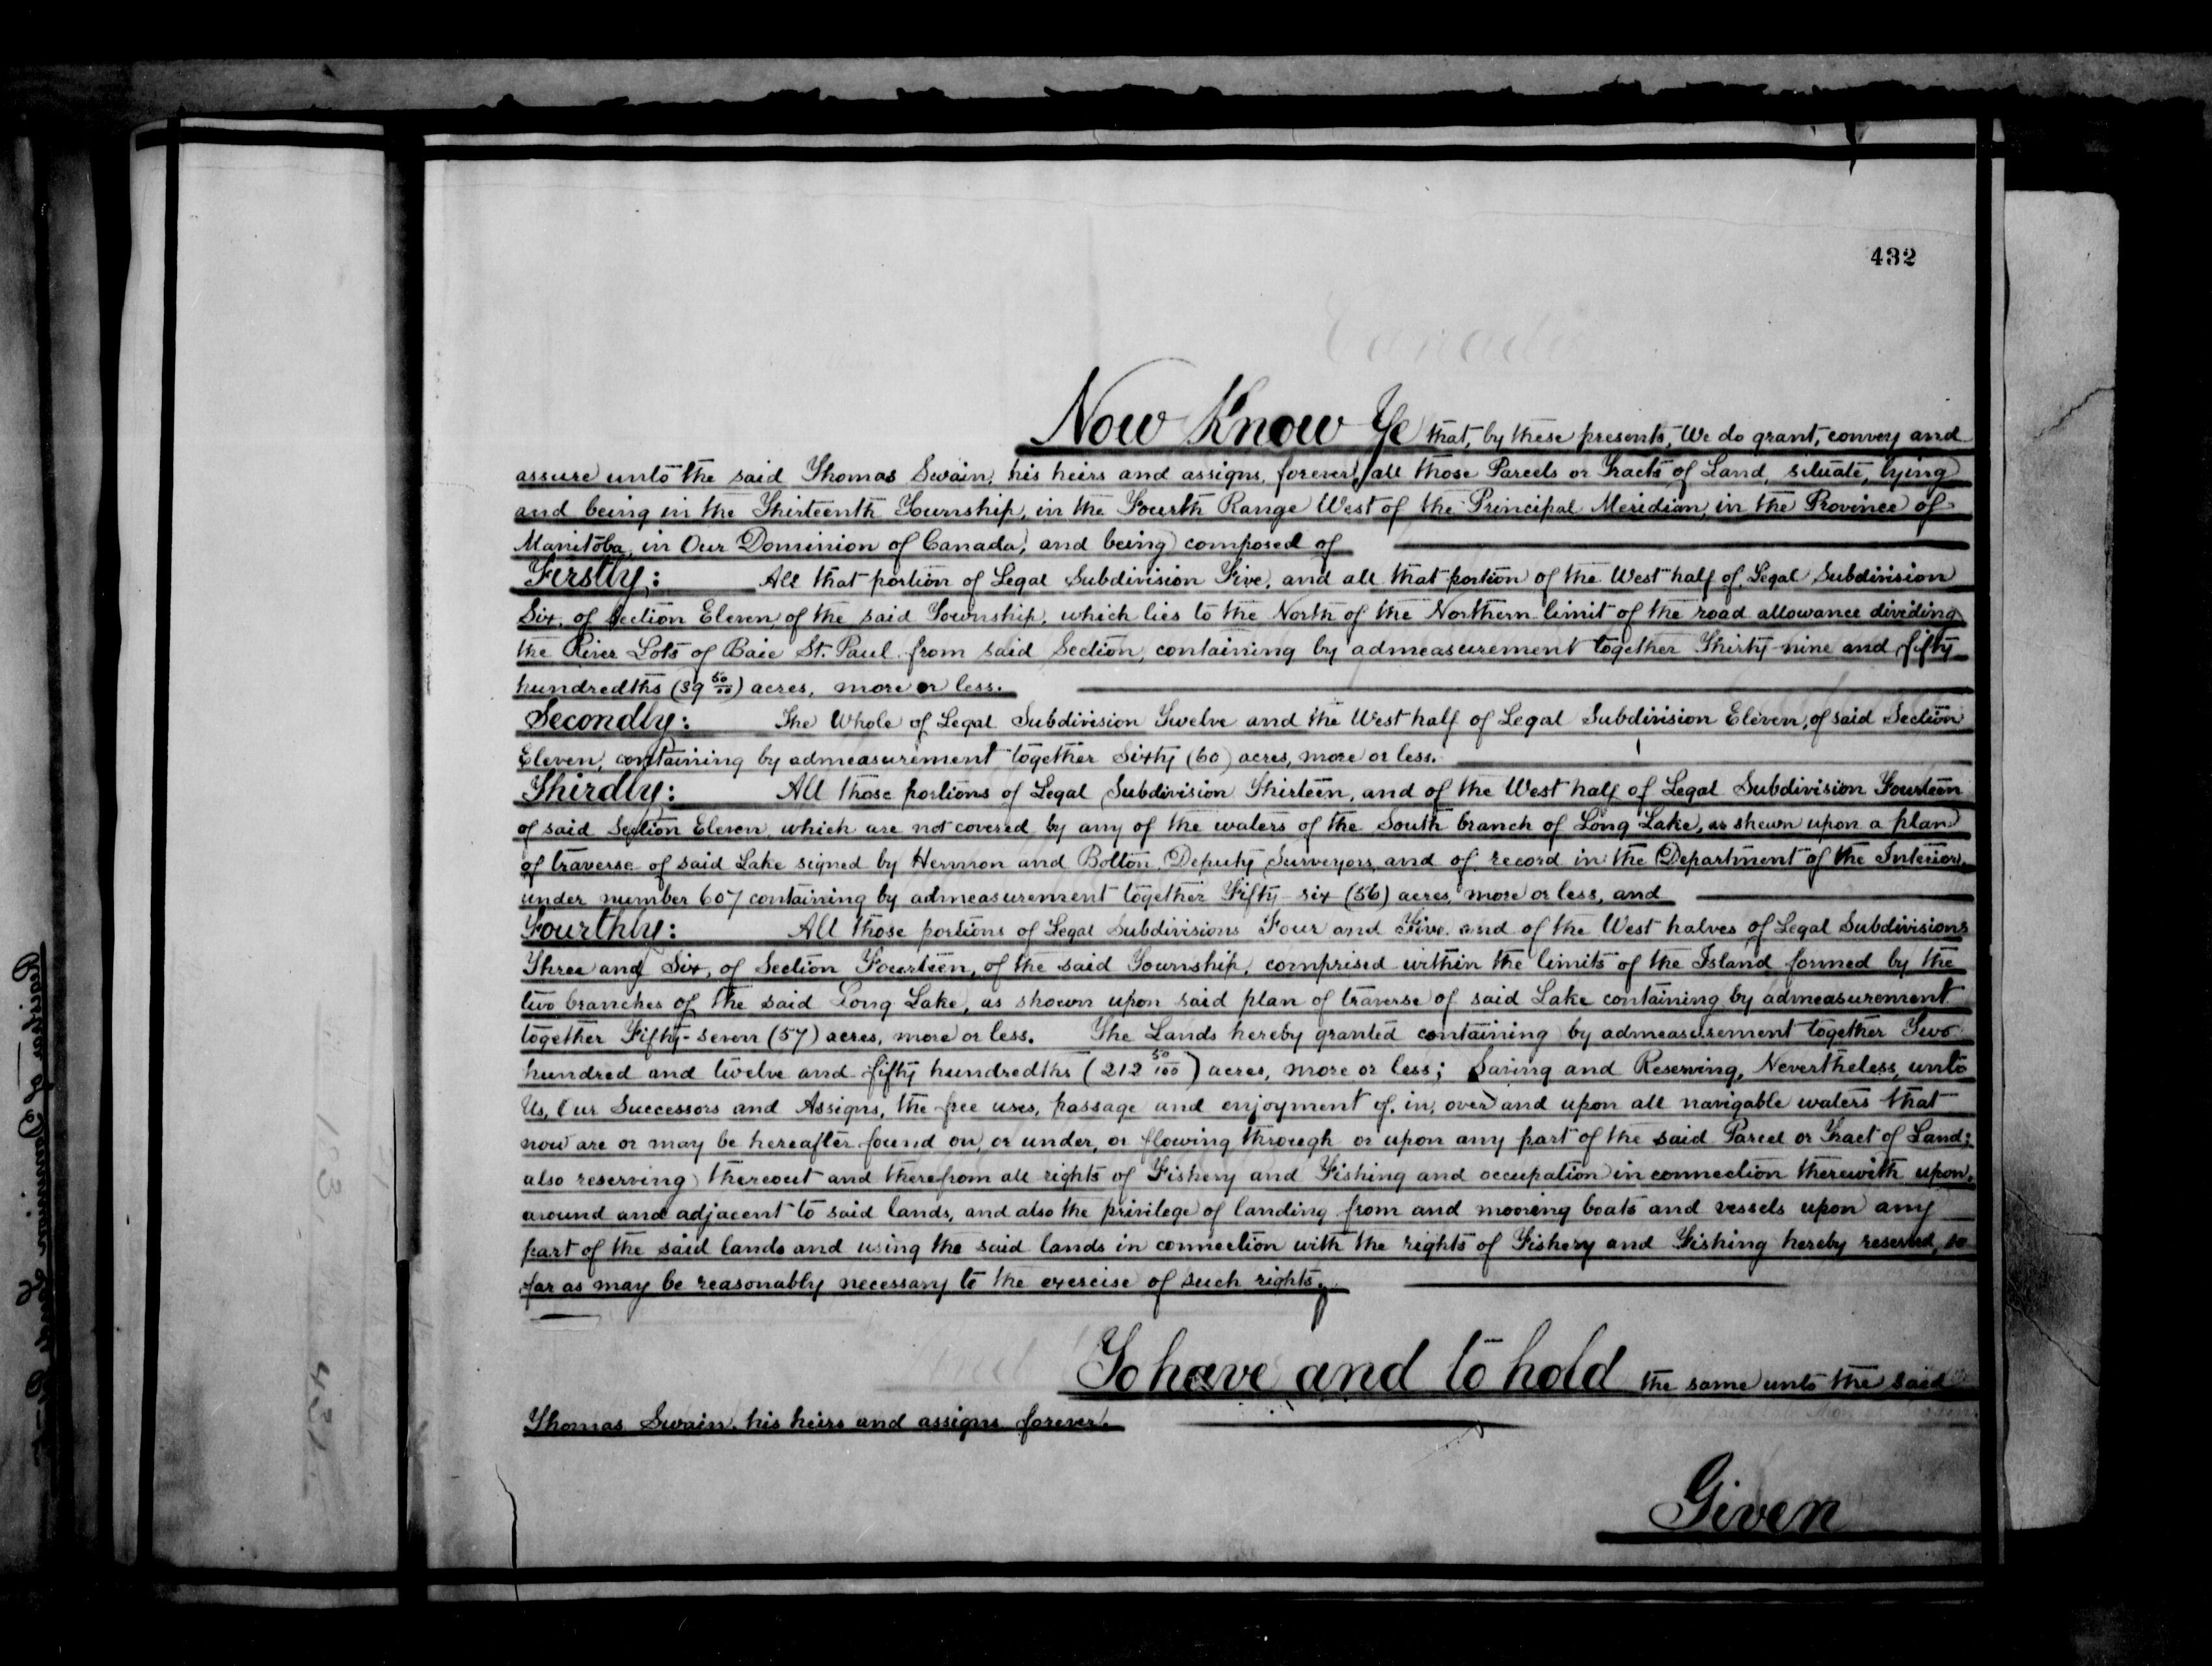 432
Now Know Ye that, by these presents, We do grant, convey and
assure unto the said Thomas Swain, his heirs and assigns, forever, all those Parcels or Tracts of Land, situate, lying
and being in the Thirteenth Township, in the Fourth Range West of the Principal Meridian, in the Province of
Manitoba, in Our Dominion of Canada, and being composed of
Firstly: All that portion of Legal Subdivision Five, and all that portion of the West half of Legal Subdivision
Six, of Section Eleven, of the said Township, which lies to the North of the Northern limit of the road allowance dividing
the River Lots of Baie St. Paul from said Section, containing by admeasurement together Thirty-nine and fifty
hundredths (39 50/100) acres, more or less.
Secondly: The Whole of Legal Subdivision Twelve and the West half of Legal Subdivision Eleven, of said Section
Eleven, containing by admeasurement together Sixty (60) acres, more or less.
Thirdly: All those portions of Legal Subdivision Thirteen, and of the West half of Legal Subdivision Fourteen
of said Section Eleven which are not covered by any of the waters of the South branch of Long Lake, as shewn upon a plan
of traverse of said Lake signed by Hermon and Bolton, Deputy Surveyors, and of record in the Department of the Interior,
under number 607 containing by admeasurement together Fifty-six (56) acres, more or less, and
Fourthly: All those portions of Legal Subdivisions Four and Five and of the West halves of Legal Subdivisions
Three and Six, of Section Fourteen, of the said Township, comprised within the limits of the Island formed by the
two branches of the said Long Lake, as shown upon said plan of traverse of said Lake containing by admeasurement
together Fifty-seven (57) acres, more or less. The Lands hereby granted containing by admeasurement together Two
hundred and twelve and fifty hundredths (212 50/100) acres, more or less; Saving and Reserving, Nevertheless, unto
Us, Our Successors and Assigns, the free uses, passage and enjoyment of, in, over and upon all navigable waters that
now are or may be hereafter found on, or under, or flowing through or upon any part of the said Parcel or Tract of Land;
also reserving thereout and therefrom all rights of Fishery and Fishing and occupation in connection therewith upon,
around and adjacent to said lands, and also the privilege of landing from and mooring boats and vessels upon any
part of the said lands and using the said lands in connection with the rights of Fishery and Fishing hereby reserved, so
far as may be reasonably necessary to the exercise of such rights.
To have and to hold the same unto the said
Thomas Swain, his heirs and assigns forever.
Given